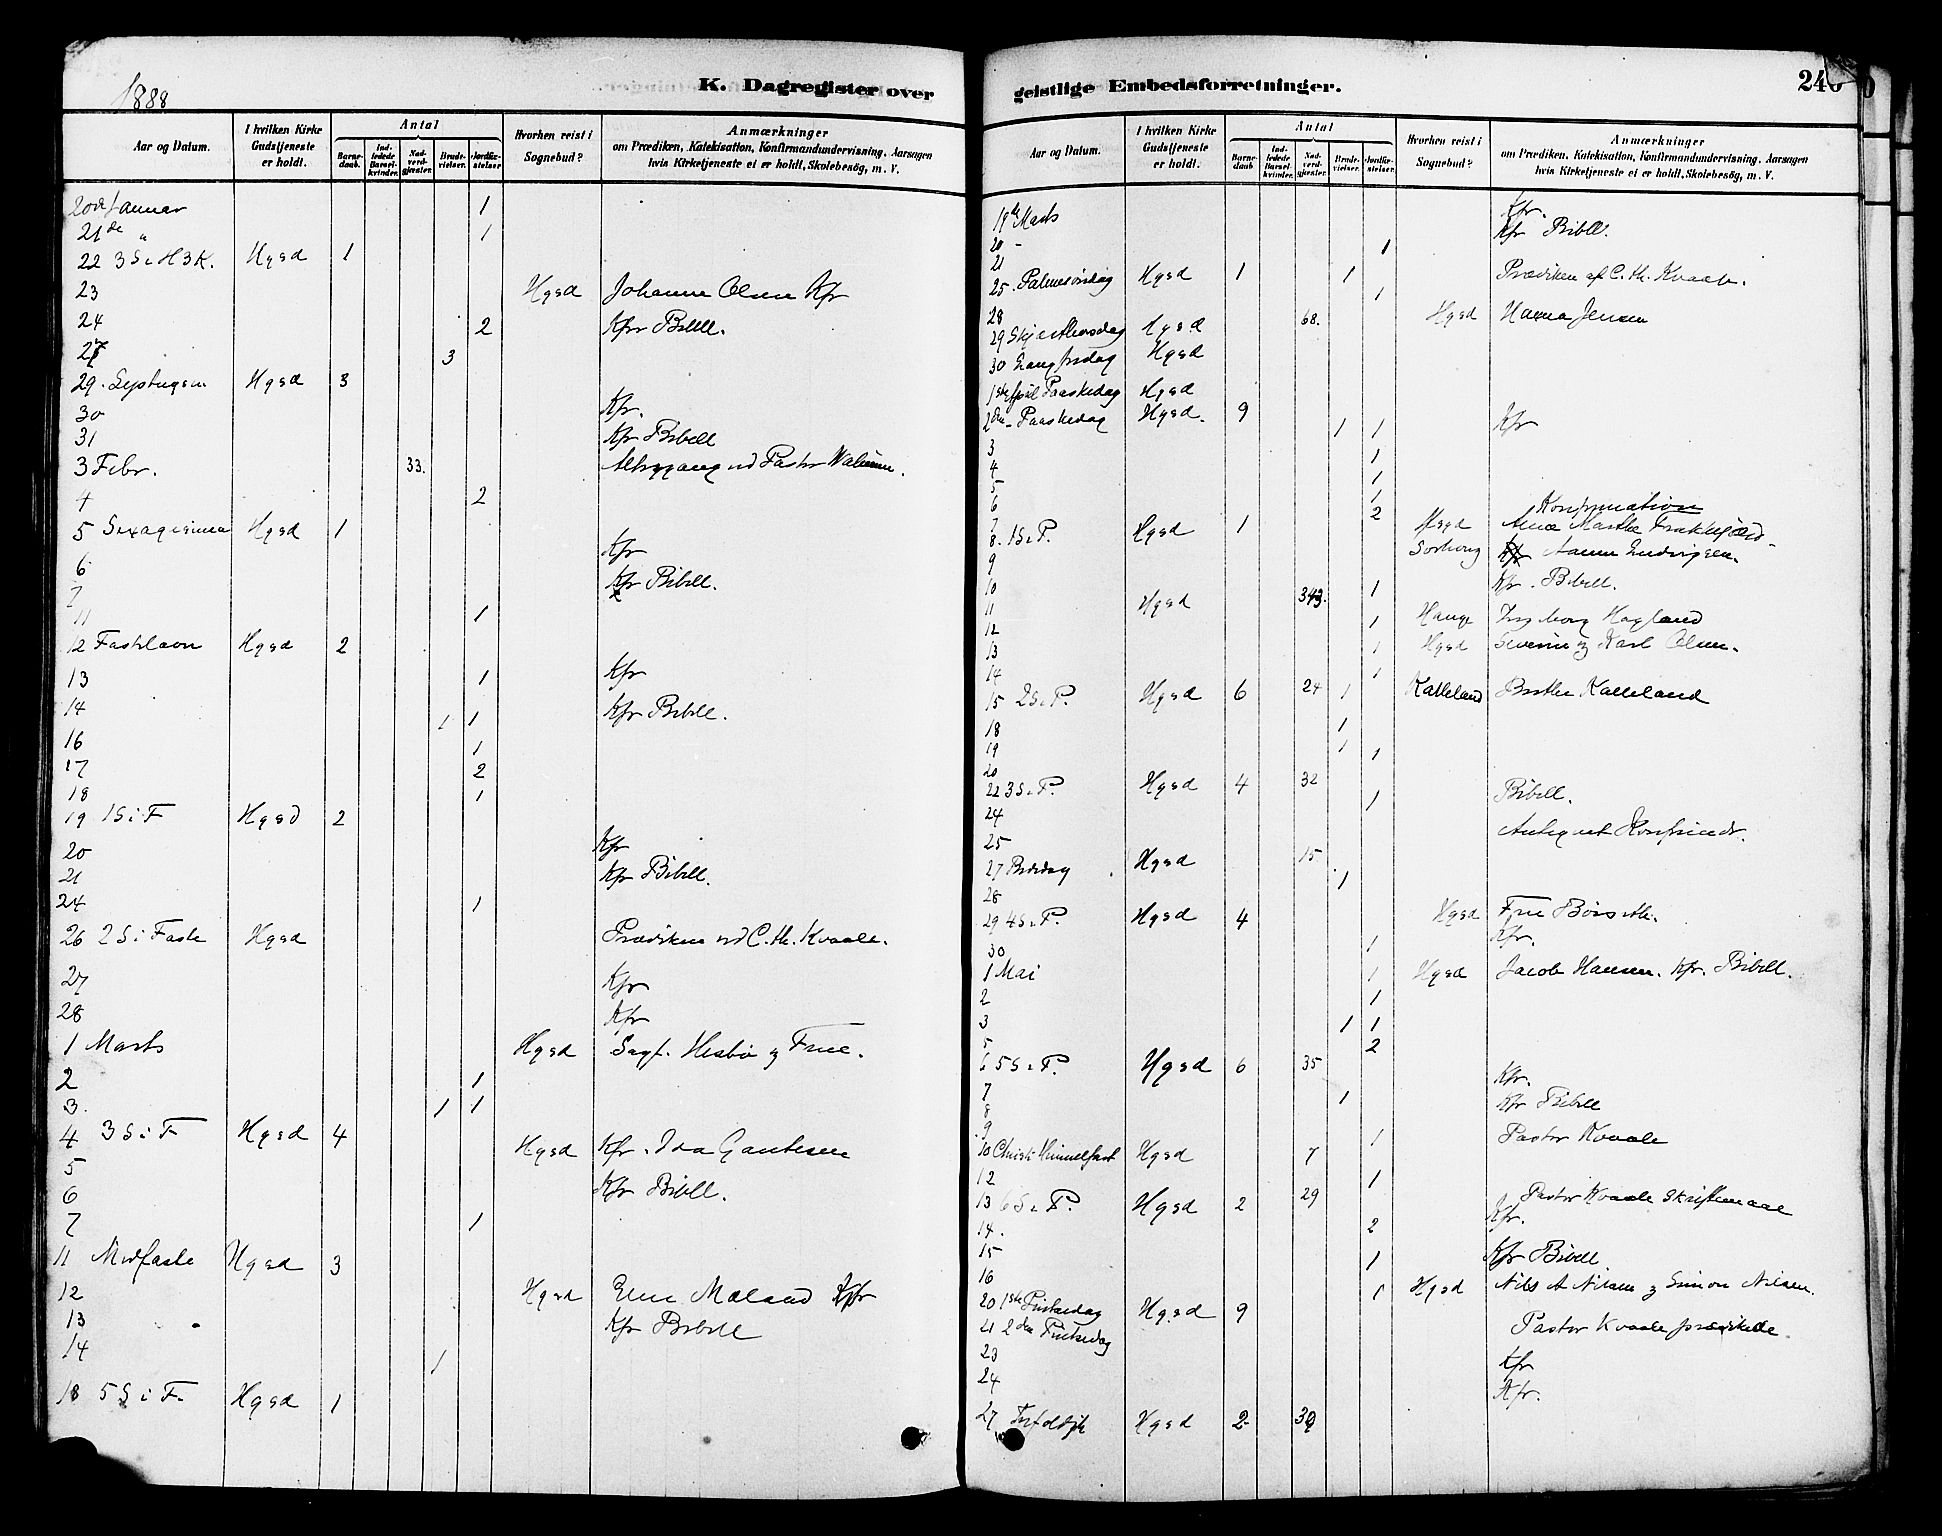 1888
K. Dagregister over
Aar og Datum. I hvilken Kirke Gudstjeneste er holdt. Antal Barnedaab. Indledede Barselkvinder. Nadverdgjæster. Brudevielser. Jordfæstelser. Hvorhen reist i Sognebud? Anmærkninger om Prædiken, Katekisation, Konfirmandundervisning, Aarsagen hvis Kirketjeneste ei er holdt, Skolebesøg, m. V.
20de Januar 1
21de " 1
22 3 S. e. H3K. Hgsd 1
23 Hgsd Johanne Olsen Kfr
24 2 Kfr Bibell.
27 3
29. Septuges. Hgsd 3
30 Kfr.
31 Kfr Bibell
3 Febr. 33. Altergang ved Pastor
4 2
5 Sexagesima Hgsd 1
6 Kfr
7 Kfr Bibell.
11 1
12 Fastelavn Hgsd 2
13 1 Kfr
14 1 1 Kfr Bibell.
16 1
17 2
18 1
19 1 S i F Hgsd 2
20 Kfr
21 Kfr Bibell.
24 1
26 2 S i Faste Hgsd Prædiken ved C. th. Kvaale.
27 Kfr
28 Kfr
1 Marts Hgsd Hesbø og Frue.
2 1
3. 1 1
4 3 S i F Hgsd 4
5 Hgsd Kfr. Ida Gautesen
6 Kfr Bibell.
7 1
11 Midfaste Hgsd 3
12 Hgsd Mæland Kfr
13 Kfr Bibell
14 1
18 5 S i F. Hgsd 1
geistlige Embedsforretninger.
24
Aar og Datum. I hvilken Kirke Gudstjeneste er holdt. Antal Barnedaab. Indledede Barselkvinder. Nadverdgjæster. Brudevielser. Jordfæstelser. Hvorhen reist i Sognebud? Anmærkninger om Prædiken, Katekisation, Konfirmandundervisning, Aarsagen hvis Kirketjeneste ei er holdt, Skolebesøg, m. V.
19de Marts Kfr.
20 - Kfr Bibell.
21 1
25. Palmesøndag Hgsd 1 1 Prædiken af C. th. Kvaale.
28 1
29 Skjærthorsdag Hgsd 68. Hgsd Hanna Jensen
30 Langfredag Hgsd
1ste April Paaskedag Hgsd
2den - Paaskedag Hgsd. 9
3 1 1 Kfr
4 1
5 1
6 1
7 2 Konfirmation
8. 1 S. e. P. Hgsd 1 Hgsd Anne Marthe
9 Sørhoug Kfr
10 1 Kfr. Bibell.
11 Hgsd 343.
12 1 Hauge Ingeborg Hagland
13 1 Hgsd Severin og Karl Olsen.
14 1
15 2 S. e. P. Hgsd 6 24 1 Kalleland Kalleland
18 1
19 1
20 1
22 3 S. e. P. Hgsd 4 32
24 1 Bibell.
25
27 Bededag Hgsd 15
28 1
29 4 S. e. P. Hgsd 4 Hgsd Frue
30 1 Kfr.
1 Mai 1 Hgsd Jacob Hansen. Kfr. Bibell.
2 1
3 1 1
5 2
6 5 S. e. P. Hgsd 6 35
7 Kfr.
8 1 Kfr Bibell
9 1 Pastor Kvaale
10 Christi Himmelfart Hgsd 7
12 1
13 6 S. e. P. Hgsd 2 29 Pastor Kvaale Skriftemaal
14. 2 Kfr.
15 1 Kfr Bibell.
16 1 Hgsd Nils A Nilsen og Simon Nilsen.
20 1ste Pintsedag Hgsd 9
21 2den Pintsedag Pastor Kvaale prædikede.
23 Kfr
24 Kfr.
27 Hgsd 2